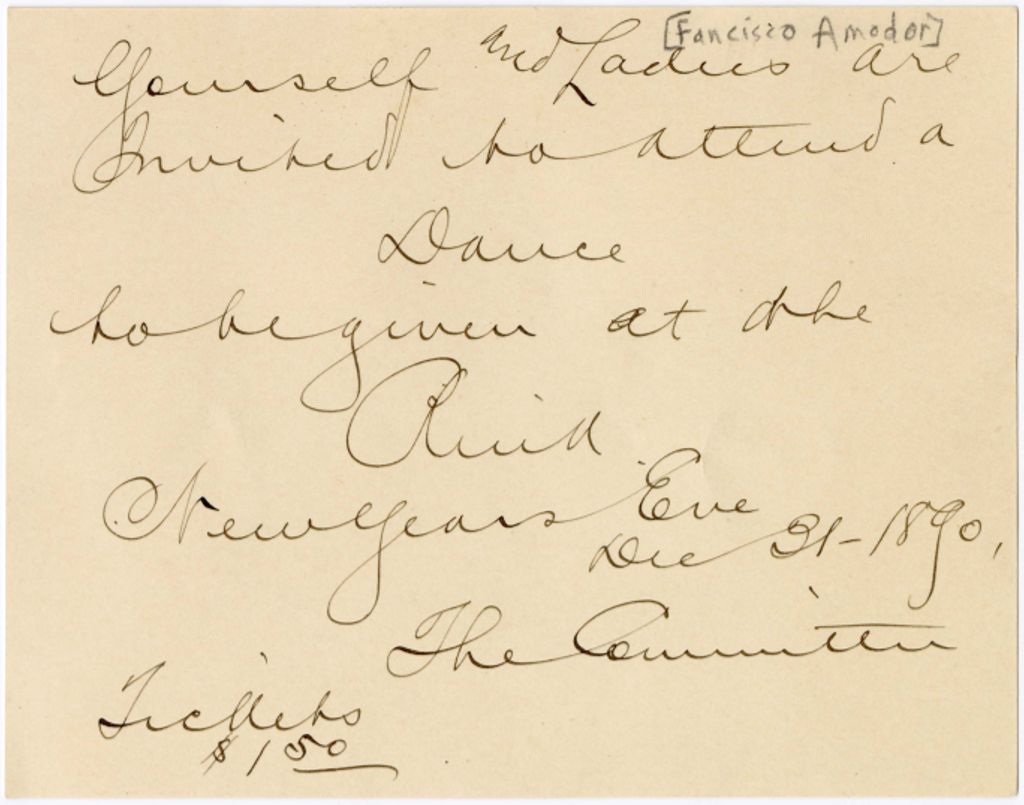 [Fancisco Amador]
Yourself and Ladies are
Invited to attend a
Dance
to be given at the
Rink
New Years Eve
Dec 31-1890,
The Committee
Tickets
$1 50